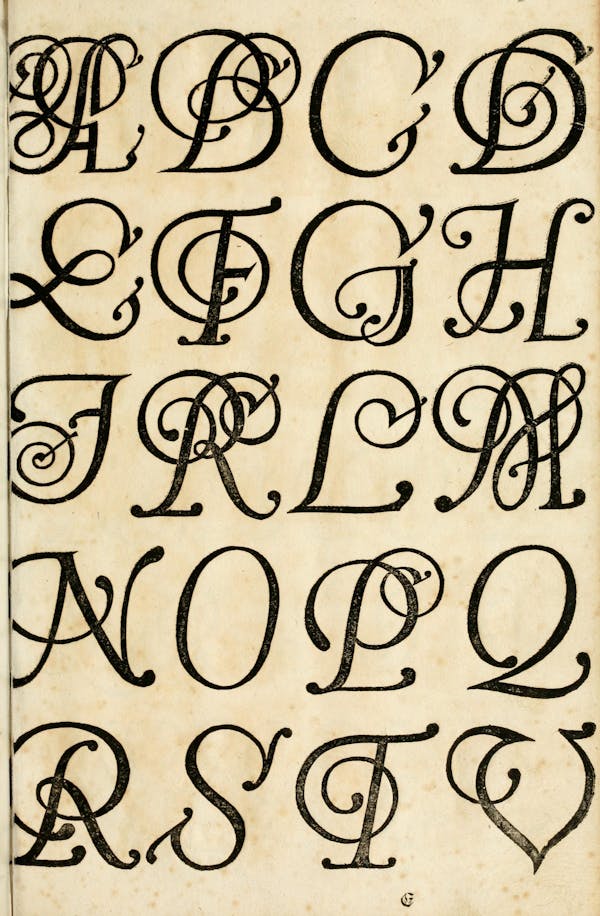 A B C D
E F G H
I K L M
N O P Q
R S T V
G